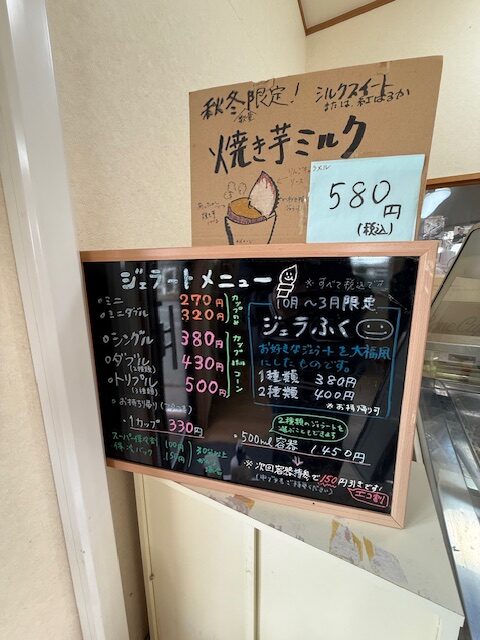 秋冬限定!
シルクスイート
または、紅はるか
焼き芋ミルク
580円
(税込)
ジェラートメニュー
※すべて税込です
○ミニ 270円
○ミニダブル 320円
カップのみ
○シングル 380円
○ダブル 430円
(2種類)
○トリプル 500円
(3種類)
カップorコーン
10月〜3月限定
ジェラふく
お好きなジェラートを大福風
にしたものです。
1種類 380円
2種類 400円
※お持ち帰り可
○お持ち帰り
・1カップ 330円
スーパー保冷剤 100円
保冷バック 150円
30分以上
2種類のジェラートを
選ぶこともできます
・500ml容器 1450円
※次回容器持参で150円引きです!
エコ割